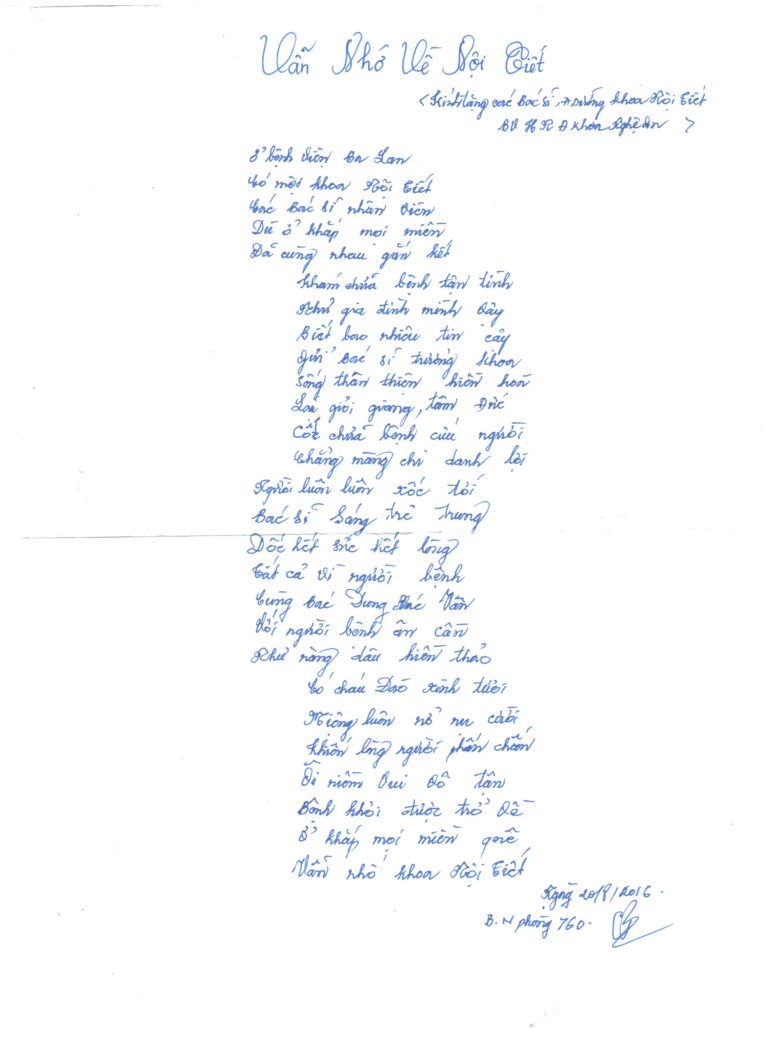 Vẫn Nhớ Về Nội Tiết
< Kính tặng các bác sĩ, Đ dưỡng khoa Nội tiết
BV H N Đ khoa Nghệ An >
Ở bệnh viện Ba Lan
Có một khoa Nội Tiết
Các Bác sĩ nhân viên
Dù ở khắp mọi miền
Đã cùng nhau gắn kết
Khám chữa bệnh tận tình
Như gia đình mình vậy
Biết bao nhiêu tin cậy
Gửi Bác sĩ trưởng khoa
Sống thân thiện hiền hoà
Lại giỏi giang, tâm Đức
Cốt chữa bệnh cứu người
Chẳng màng chi danh lợi
Người luôn luôn xốc tới
Bác sĩ Sáng trẻ trung
Dốc hết sức hết lòng
Tất cả vì người bệnh
Cùng bác Dung bác Vân
Với người bệnh ân cần
Như nàng dâu hiền thảo
Có cháu Đào xinh tươi
Miệng luôn nở nụ cười
Khiến lòng người phấn chấn
Ôi niềm vui vô tận
Bệnh khỏi được trở về
Ở khắp mọi miền quê
Vẫn nhớ khoa Nội Tiết
Ngày 20/8/2016.
B.N phòng 760.